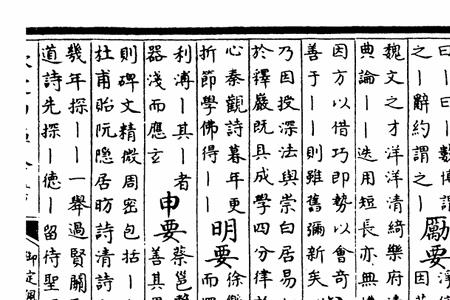 曰丨曰丨數博謂
之丨辭約謂之丨丨
勵要
因
魏文之才洋洋清綺樂府
典論丨丨迭用短長亦無
因方以借巧即勢以會奇
善于丨丨則雖舊彌新矣
乃因投深法與崇白居易
於釋巖既具成學四分律
心秦觀詩暮年更
折節學佛得丨丨
明要
徐
而
利溥丨其丨者
器淺而應玄
申要
蔡邕
善其
則碑文精微周密包括丨
杜甫貽阮隱居昉詩清詩
幾年探丨丨一舉過賢關
道詩先探丨德丨留待聖
御定